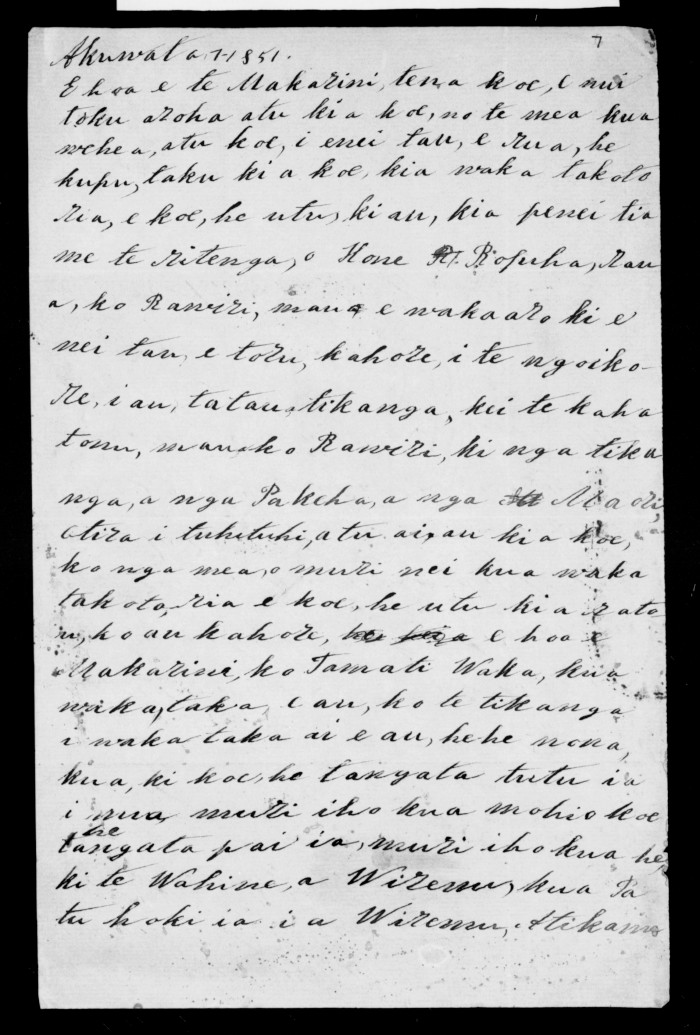 7
Akuwata, 7 1851.
E hoa e te Makarini, tena koe, e nui
toku aroha atu ki a koe, no te mea kua
wehea, atu koe, i enei tau, e rua, he
kupu, taku ki a koe, kia waka takoto
ria, e koe, he utu, ki au, kia penei tia
me te ritenga, o Hone Ropuha, rau
a, ko Rawiri, maua e wakaaro ki e
nei tau, e toru, kahore, i te ngoiko-
re, i au, tatau, tikanga, kei te kaha
tonu, maua ko Rawiri, ki nga tika
nga, a nga Pakeha, a nga Maori,
otira i tuhituhi, atu ai, au kia koe,
ko nga mea, o muri nei kua waka
takoto, ria e koe, he utu ki a rato
u, ko au kahore, e hoa e
Makarini, ko Tamati Waka, kua
waka, taka, e au, ko te tikanga
i waka taka ai e au, hehe nona,
kua, ki koe, he tangata tutu ia
i mua, muri iho kua mohio koe
he tangata pai ia, muri iho kua he,
ki te Wahine, a Wiremu, kua Pa
tu hoki ia i a Wiremu,